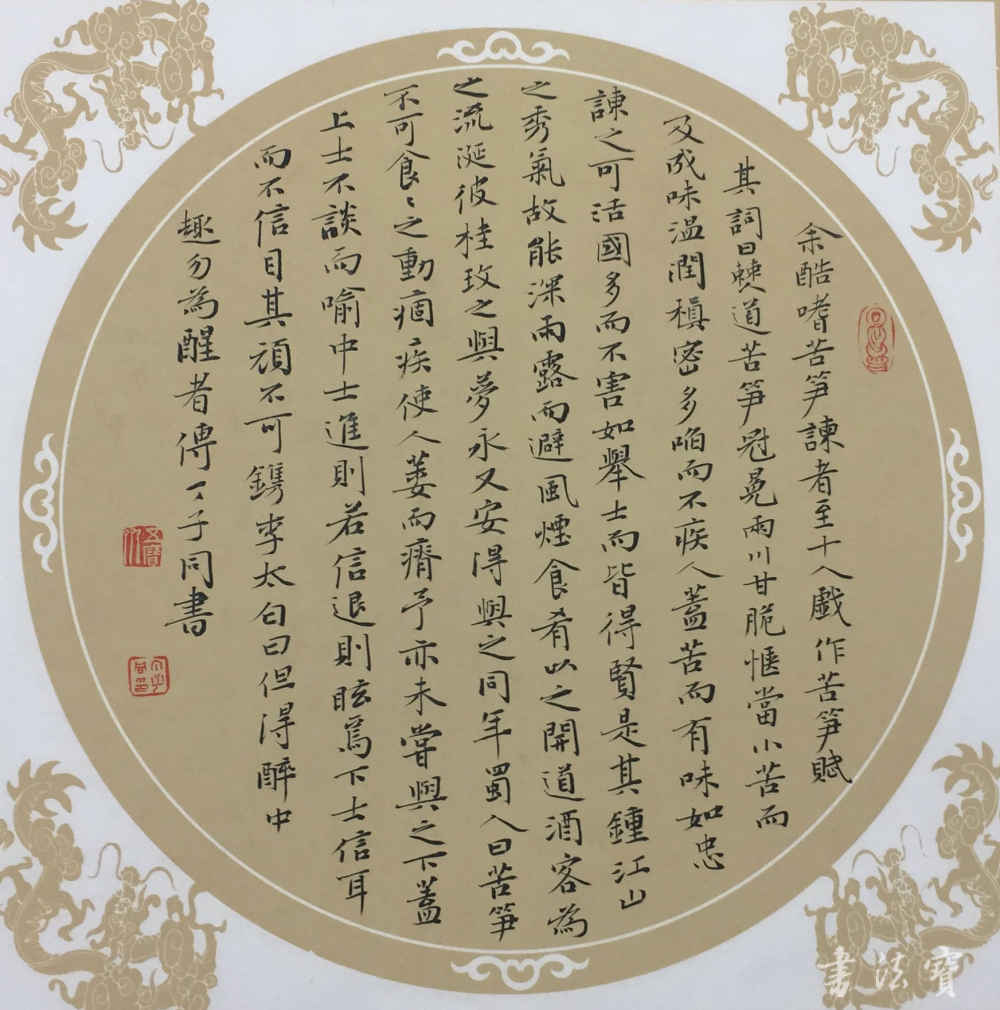 余酷嗜苦笋諫者至十人戲作苦笋賦
其詞曰僰道苦笋冠冕兩川甘脆愜當小苦而
及成味溫潤稹密多啗而不疾人蓋苦而有味如忠
諫之可活國多而不害如舉士而皆得賢是其鍾江山
之秀氣故能深雨露而避風煙食肴以之開道酒客為
之流涎彼桂玫之與夢永又安得與之同年蜀人曰苦笋
不可食〻之動痼疾使人萎而瘠予亦未嘗與之下蓋
上士不談而喻中士進則若信退則眩焉下士信耳
而不信目其頑不可鐫李太白曰但得醉中
趣勿為醒者傳 丁子同書
書法寶